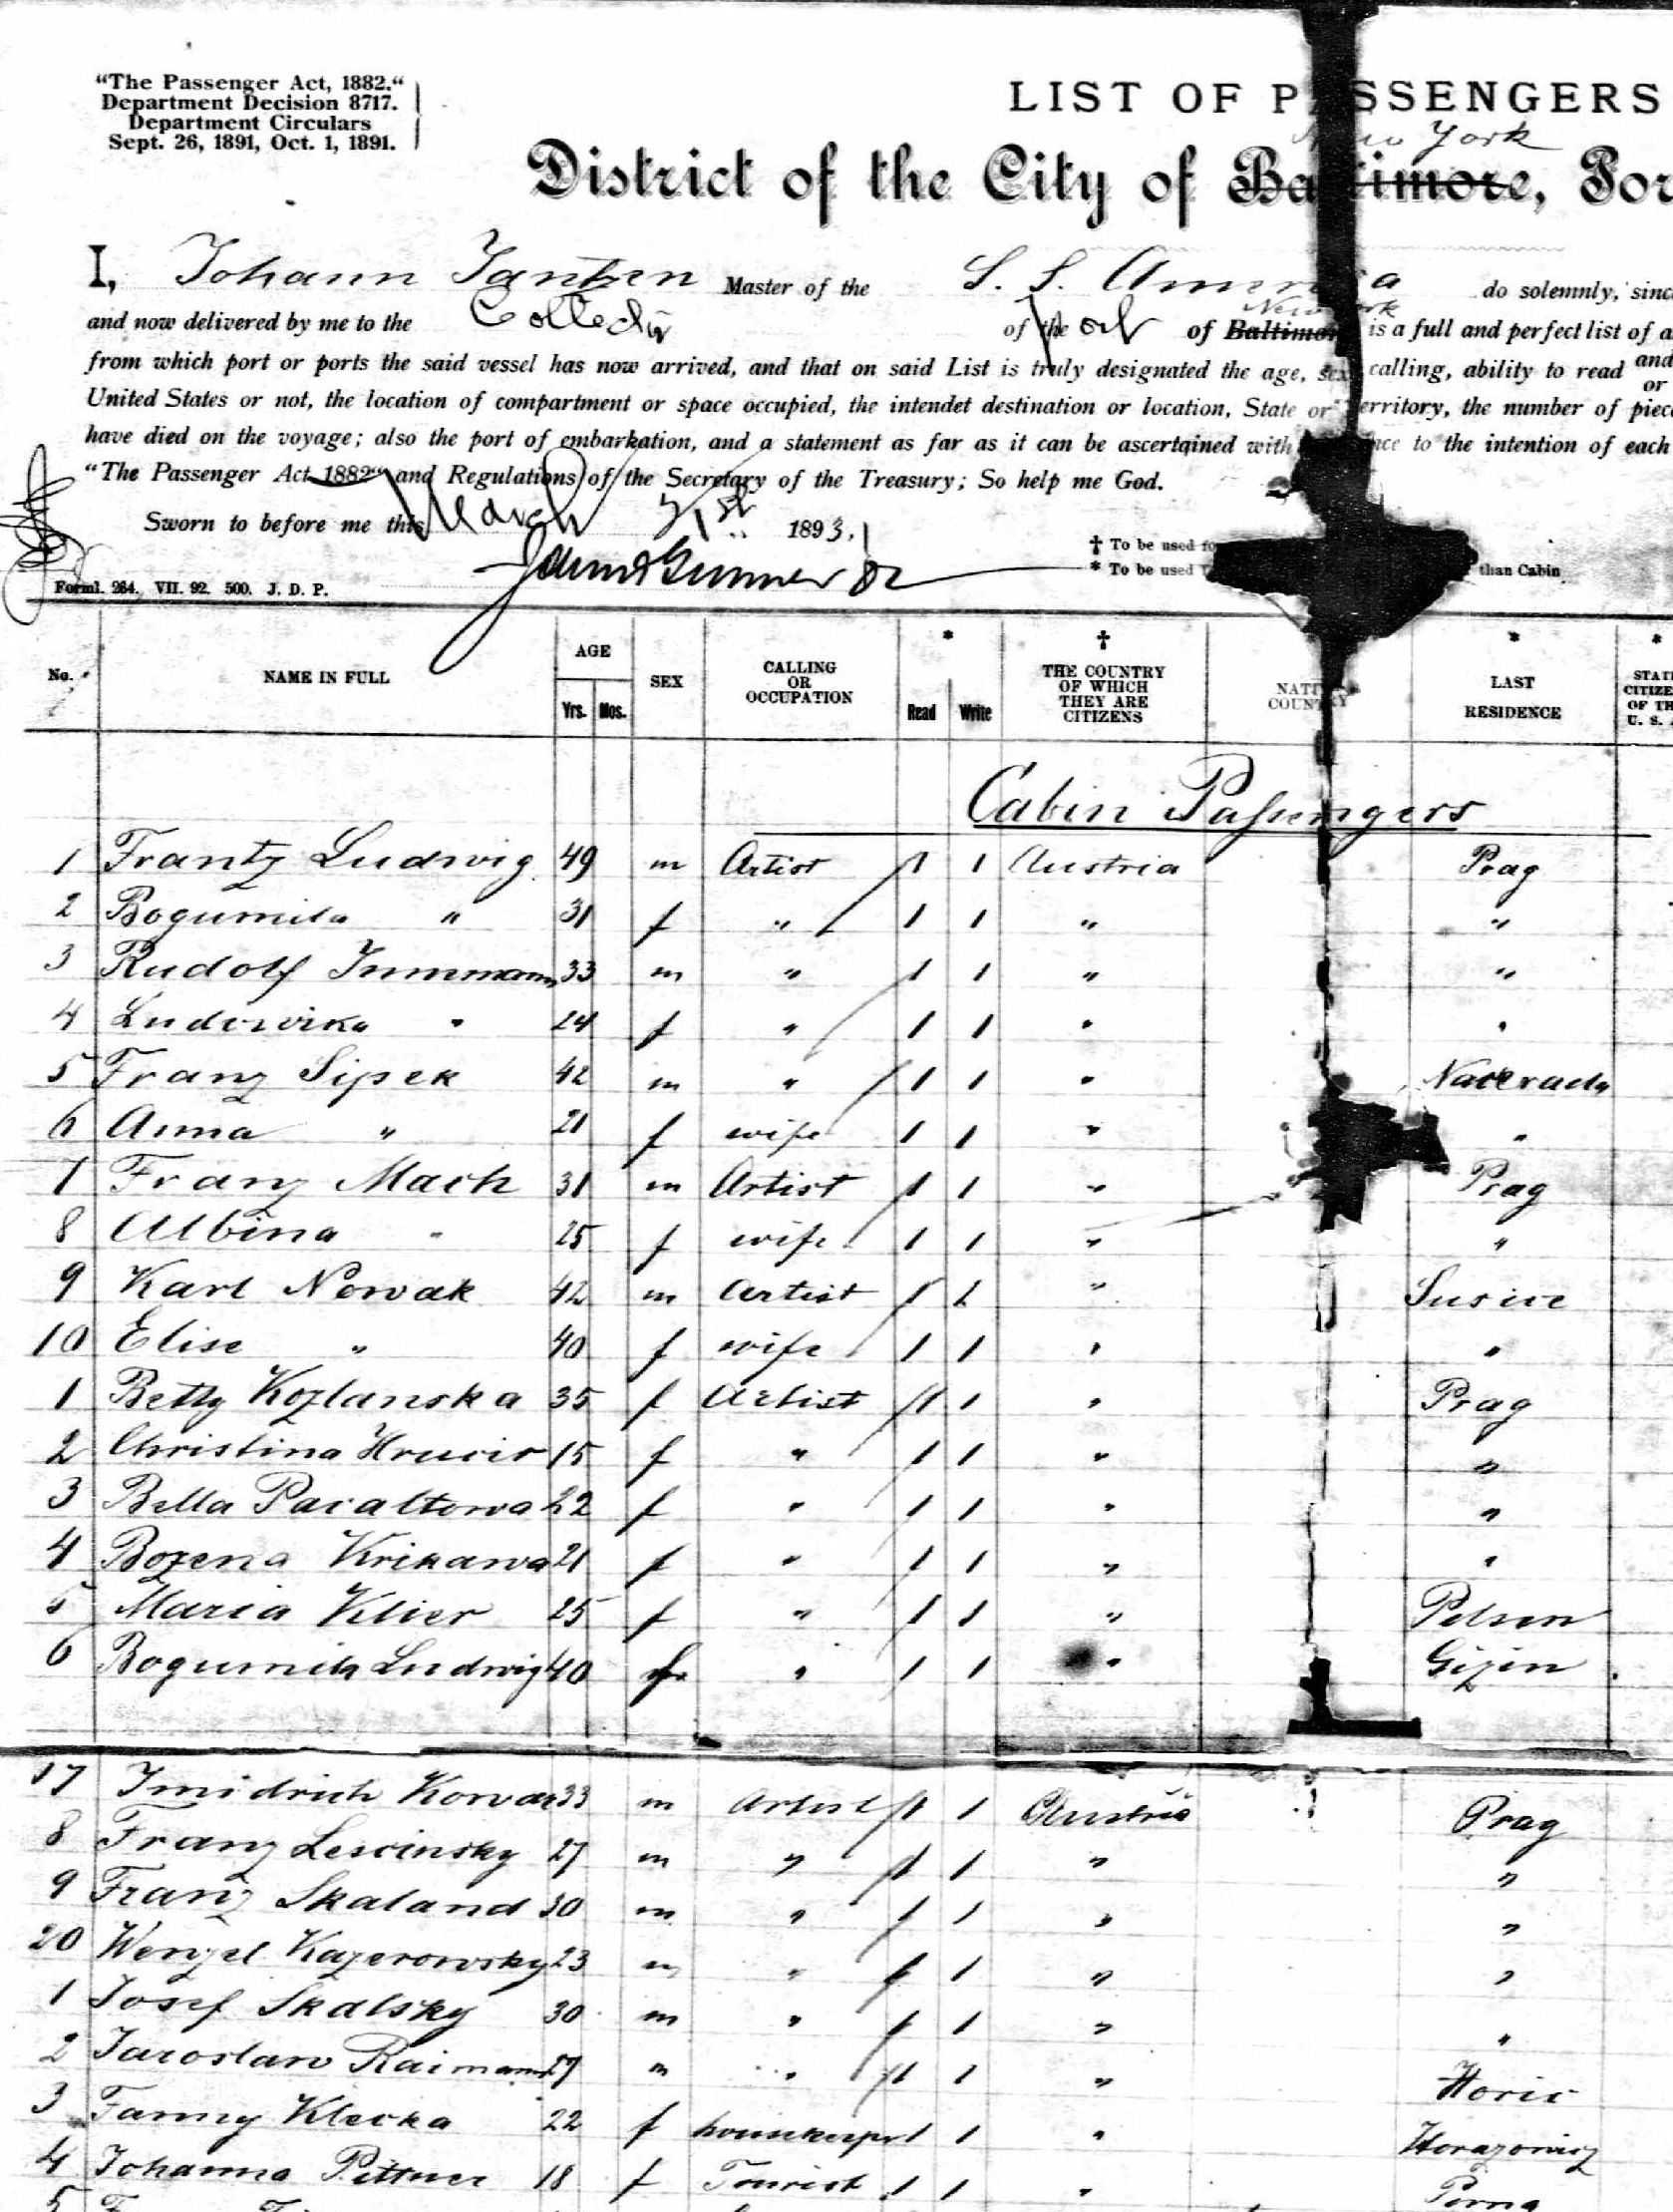 "The Passenger Act, 1882."
Department Decision 8717.
Department Circulars
Sept. 26, 1891, Oct. 1, 1891.
LIST OF P SSENGERS
New York
District of the City of Baltimore, Por
I, Johann Jantzen Master of the S. S. America do solemnly, since
and now delivered by me to the Collector of the Port of Baltimore New York is a full and perfect list of a
from which port or ports the said vessel has now arrived, and that on said List is truly designated the age, sex, calling, ability to read and or
United States or not, the location of compartment or space occupied, the intendet destination or location, State or Territory, the number of piece
have died on the voyage; also the port of embarkation, and a statement as far as it can be ascertained with nce to the intention of each
"The Passenger Act 1882" and Regulations of the Secretary of the Treasury; So help me God.
Sworn to before me this March 31st 1893.
† To be used fo
* To be used than Cabin
Forml. 264. VII. 92. 500. J. D. P.
No. NAME IN FULL AGE Yrs. Mos. SEX CALLING OR OCCUPATION * Read Write † THE COUNTRY OF WHICH THEY ARE CITIZENS NATI COUNTRY * LAST RESIDENCE * STAT CITIZE OF TH U. S.
Cabin Passengers
1 Frantz Ludwig 49 m Artist 1 1 Austria Prag
2 Bogumila " 31 f " 1 1 " "
3 Rudolf Innmann 33 m " 1 1 " "
4 Ludowika " 24 f " 1 1 " "
5 Franz Sipek 42 m " 1 1 "
6 Anna " 21 f wife 1 1 " "
7 Franz Mach 31 m Artist 1 1 " Prag
8 Albina " 25 f wife 1 1 " "
9 Karl Nowak 42 m Artist 1 1 " Susice
10 Elise " 40 f wife 1 1 " "
1 Betty Kozlanska 35 f Artist 1 1 " Prag
2 Christina Hrucir 15 f " 1 1 " "
3 Bella Pacaltowa 22 f " 1 1 " "
4 Bozena Krikawa 21 f " 1 1 " "
5 Maria Klier 25 f " 1 1 " Pilsen
6 Bogumila Ludwig 40 f " 1 1 " Gizin
17 Kowar 33 m Artist 1 1 Austria Prag
8 Franz Lescinsky 27 m " 1 1 " "
9 Franz Skaland 30 m " 1 1 " "
20 Wenzel Kazerowsky 23 m " 1 1 " "
1 Josef Skalsky 30 m " 1 1 " "
2 Jaroslaw Raimann 27 m " 1 1 " Horic
3 Fanny Klecka 22 f housekeeper 1 1 "
4 Johanna Pittner 18 f Tourist 1 1 "
5